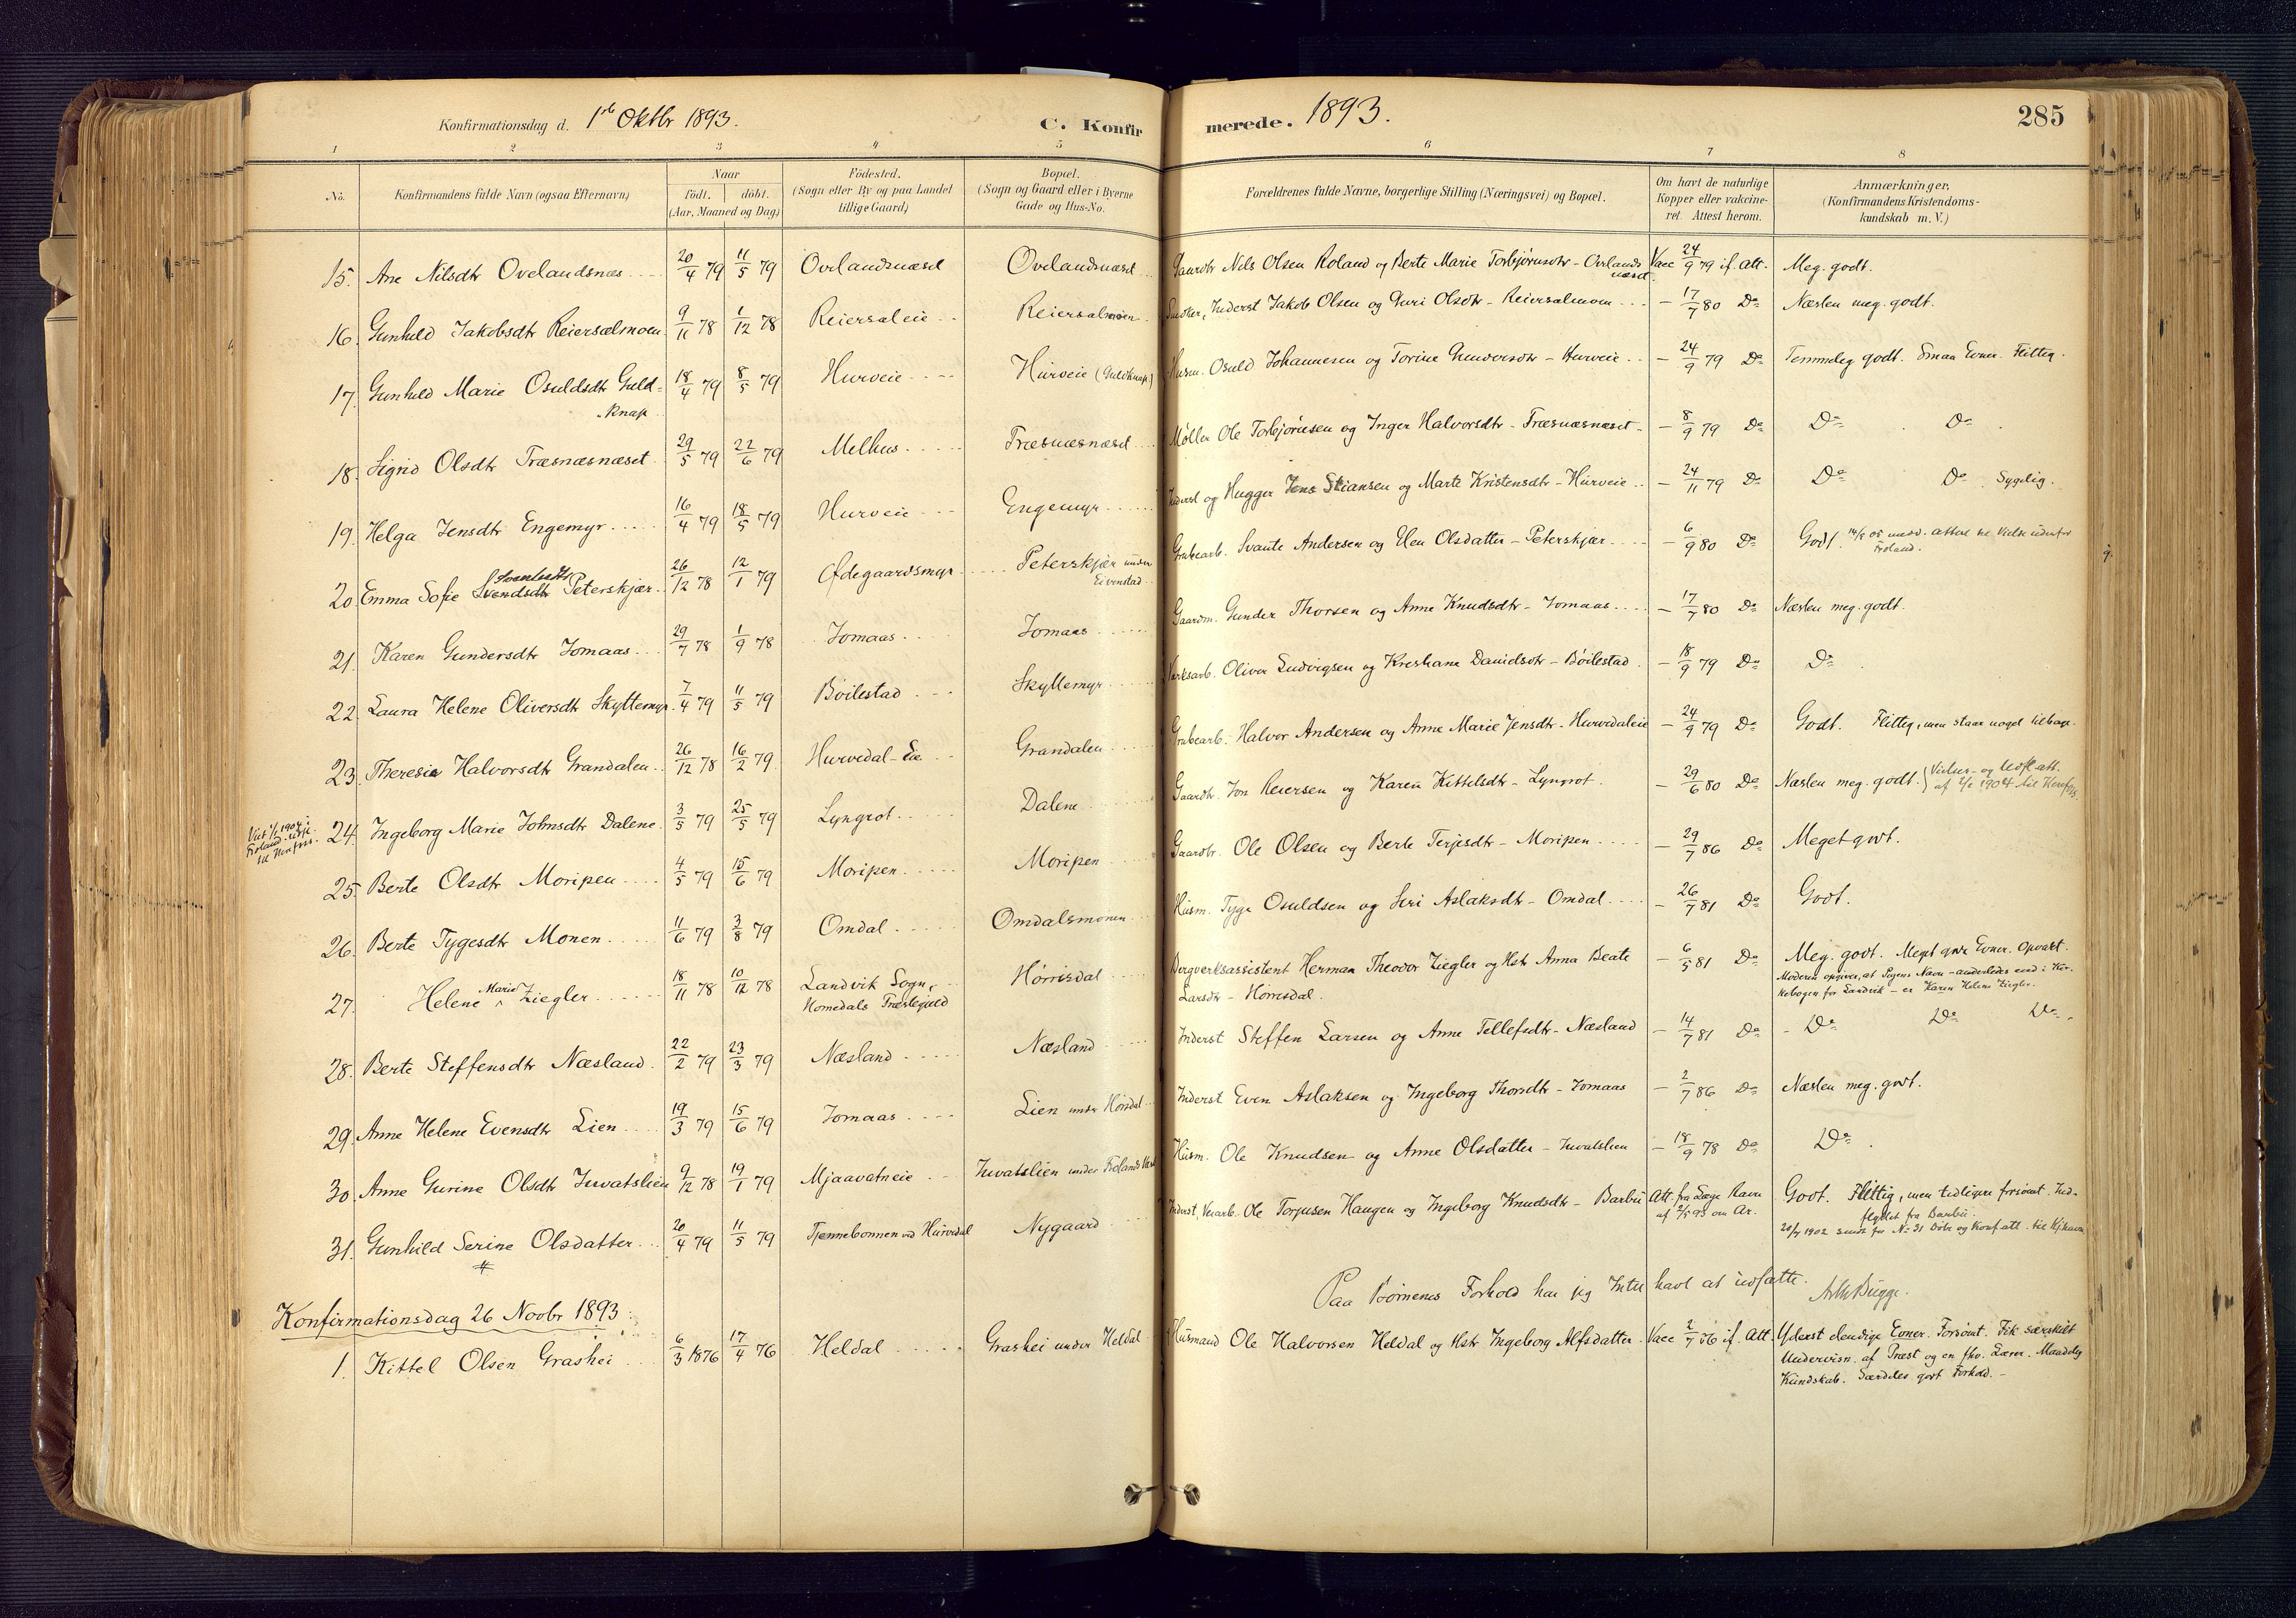 Konfirmationsdag d. 1ste Oktbr 1893.
C. Konfirmerede. 1893.
285
1 2 3 4 5 6 7 8
No. Konfirmandens fulde Navn (ogsaa Efternavn) Naar født. døbt. (Aar, Maaned og Dag) Fødested. (Sogn eller By og paa Landet tillige Gaard) Bopæl. (Sogn og Gaard eller i Byerne Gade og Hus-No. Forældrenes fulde Navne, borgerlige Stilling (Næringsvei) og Bopæl. Om havt de naturlige Kopper eller vaccineret. Attest herom. Anmærkninger, (Konfirmandens Kristendomskundskab m. V.)
15. Ane Nilsdtr Ovelandsnæs 20/4 79 11/5 79 Ovelandsnæset Ovelandsnæset Gaardbr Nils Olsen Roland og Berte Marie Torbjørnsdtr - Ovelandsnæset Vacc 24/9 79 if. Att. Meg. godt.
16. Gunhild Jakobsdtr Reiersølmoen 9/11 78 1/12 78 Reiersøleie Reiersølmoen Snedker, Inderst Jakob Olsen og Guri Olsdtr - Reiersølmoen - 17/7 80 Do Næsten meg. godt.
17. Gunhild Marie Osuldsdtr Guldknap 18/4 79 8/5 79 Hurveie Hurveie (Guldknap) Husm. Osuld Johannesen og Torine Gundersdtr - Hurveie - 24/9 79 Do Temmelig godt. Smaa Evner. Flittig.
18. Sigrid Olsdtr Træsnæsnæset 29/5 79 22/6 79 Melhus Træsnæsnæset Møller Ole Torbjørnsen og Inger Halvorsdtr - Træsnæsnæset - 8/9 79 Do Do Do
19. Helga Jensdtr Engemyr 16/4 79 18/5 79 Hurveie Engemyr Inderst og Hugger Jens Stiansen og Marte Kristensdtr - Hurveie - 24/11 79 Do Do Do Sygelig.
20. Emma Sofie Svendsdtr Svantesdtr Peterskjær 26/12 78 12/1 79 Ødegaardsmyr Peterskjær under Eivenstad Grubearb. Svante Andersen og Elen Olsdatter - Peterskjær - 6/9 80 Do Godt. 14/8 05 Froland.
21. Karen Gundersdtr Jomaas 29/7 78 1/9 78 Jomaas Jomaas Gaardm. Gunder Thorsen og Anne Knudsdtr - Jomaas - 17/7 80 Do Næsten meg. godt.
22. Laura Helene Oliversdtr Skyttemyr 7/4 79 11/5 79 Bøilestad Skyttemyr Verksarb. Oliver Ludvigsen og Kreshane Danielsdtr - Bøilestad - 18/9 79 Do Do
23. Theresia Halvorsdtr Grandalen 26/12 78 16/2 79 Hurvedal-Eie Grandalen Grubearb. Halvor Andersen og Anne Marie Jensdtr - Hurvedaleie - 24/9 79 Do Godt. Flittig, men staar noget tilbage.
24. Ingeborg Marie Johnsdtr Dalene 3/5 79 25/5 79 Lyngrot Dalene Gaardbr. Jon Reiersen og Karen Kittelsdtr - Lyngrot - 29/6 80 Do Næsten meg. godt. Vielses- og Udfl. att. af 2/2 1904 til
25. Berte Olsdtr Moripen 4/5 79 15/6 79 Moripen Moripen Gaardbr. Ole Olsen og Berte Terjesdtr - Moripen - 29/7 86 Do Meget godt.
26. Berte Tygesdtr Monen 11/6 79 3/8 79 Omdal Omdalsmonen Husm. Tyge Osuldsen og Siri Aslaksdtr - Omdal - 26/7 81 Do Godt.
27. Helene Marie Ziegler 18/11 78 10/12 78 Landvik Sogn, Homedals Præstegjeld Hørrisdal Bergverksassistent Herman Theodor Ziegler og Hstr Anna Beate Larsdtr - Hørrisdal. - 6/5 81 Do Meg. godt. Meget gode Evner. Opvakt. Moderen opgiver, at Pigens Navn - anderledes end i Kirkebogen for Landvik - er Karen Helene Ziegler.
28. Berte Steffensdtr Næsland 22/2 79 23/3 79 Næsland Næsland Inderst Steffen Larsen og Anne Tellefsdtr - Næsland - 14/7 81 Do - Do Do Do
29. Anne Helene Evensdtr Lien 19/3 79 15/6 79 Jomaas Lien under Inderst Even Aslaksen og Ingeborg Thorsdtr - Jomaas - 2/7 86 Do Næsten meg. godt.
30. Anne Gurine Olsdtr Juvatslien 9/12 78 19/1 79 Mjaavatneie Juvatslien under Frolands Verk Husm. Ole Knudsen og Anne Olsdatter - Juvatslien - 18/9 78 Do Do
31. Gunhild Serine Olsdatter 20/4 79 11/5 79 Tjennebonnen ved Hurvedal Nygaard Inderst, Ole Torjusen Haugen og Ingeborg Knudsdtr - Barbu Att. fra Læge Ravn af 2/5 93 om Ar. Godt. Flittig, men tidligere forsømt. Indflyttet fra Barbu.
1902 sendt for No 31 Dåbs og Konf. att. til
Paa Børnenes Forhold har jeg Intet havt at udsætte.
Bugge.
Konfirmationsdag 26 Novbr 1893:
1. Kittel Olsen Grashei 6/3 1876 17/4 76 Heldal Grashei under Heldal Husmand Ole Halvorsen Heldal og Hstr Ingeborg Alfsdatter Vacc 2/7 76 if. Att. Yderst elendige Evner. Forsømt. Fik særskilt
Undervisn. af Præst og en Lærer. Maadelig
Kundskab. Særdeles godt Forhold.